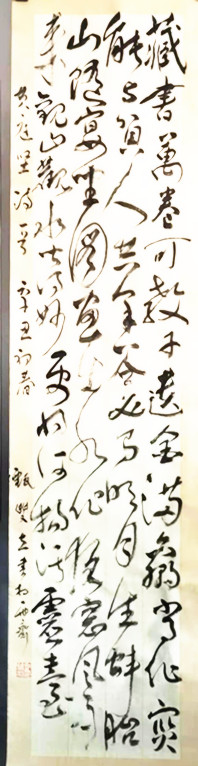 藏書萬卷可教子遺金滿籯常作灾
能与貧人共年谷必有明月生蚌胎
山隨宴坐圖畫出水作夜窓風雨
来觀山觀水皆得妙更将何物污靈臺
黄庭坚诗一首 辛丑初春
立書於